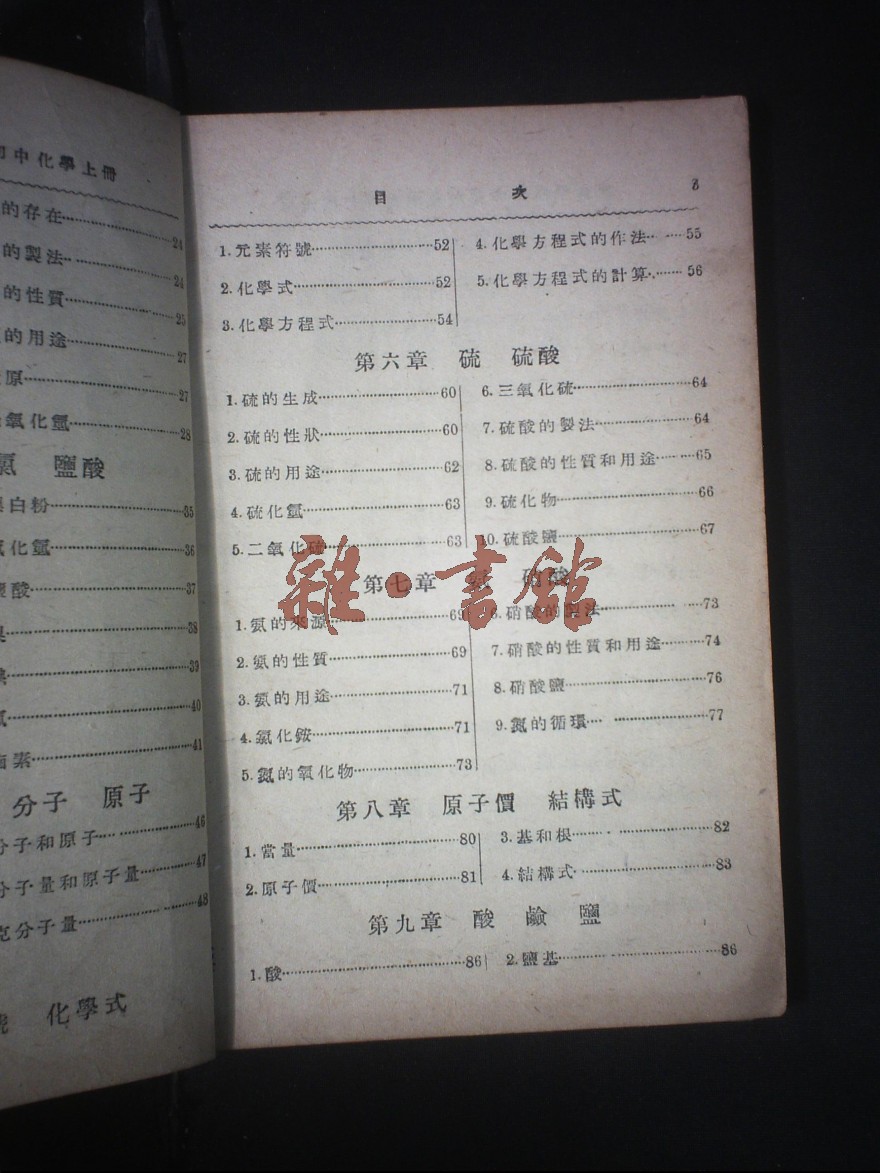 中化學上冊
的存在……24
的製法……24
的性質……25
的用途……27
原……27
氧化氫……28
鹽酸
白粉……35
化氫……36
酸……37
……38
……39
……40
素……41
分子 原子
分子和原子……46
分子量和原子量……47
克分子量……48
化學式
目 次 3
1.元素符號……52
2.化學式……52
3.化學方程式……54
4.化學方程式的作法……55
5.化學方程式的計算……56
第六章 硫 硫酸
1.硫的生成……60
2.硫的性狀……60
3.硫的用途……62
4.硫化氫……63
5.二氧化硫……63
6.三氧化硫……64
7.硫酸的製法……64
8.硫酸的性質和用途……65
9.硫化物……66
10.硫酸鹽……67
第七章 硝酸
1.氨的來源……69
2.氨的性質……69
3.氨的用途……71
4.氯化銨……71
5.氮的氧化物……73
6.硝酸的製法……73
7.硝酸的性質和用途……74
8.硝酸鹽……76
9.氮的循環……77
第八章 原子價 結構式
1.當量……80
2.原子價……81
3.基和根……82
4.結構式……83
第九章 酸 鹼 鹽
1.酸……86
2.鹽基……86
雜·書館